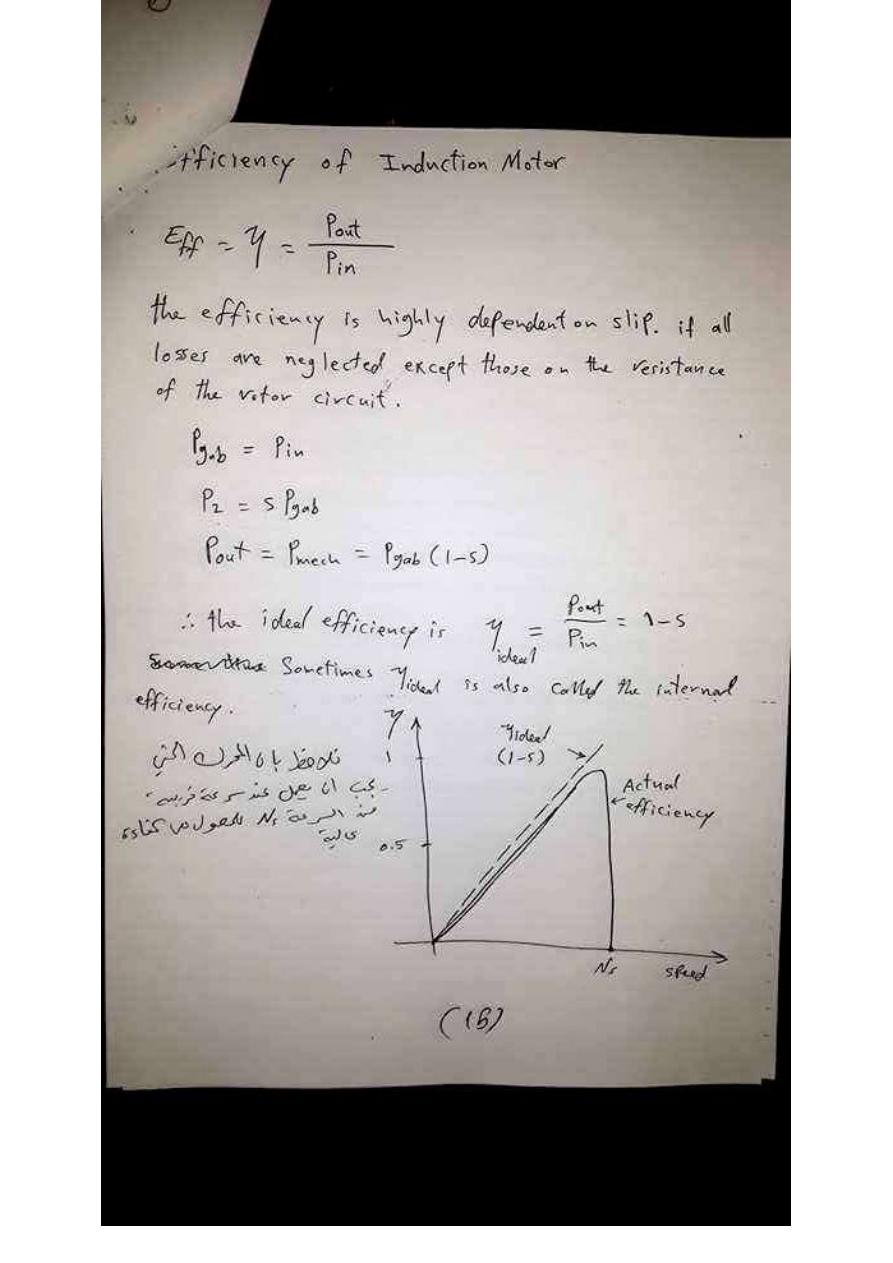 Efficiency of Induction Motor
Eff = η = Pout / Pin
the efficiency is highly dependent on slip. if all
losses are neglected except those on the resistance
of the rotor circuit.
Pgab = Pin
P2 = s Pgab
Pout = Pmech = Pgab (1-s)
∴ the ideal efficiency is ηideal = Pout / Pin = 1-s
Sometimes ηideal is also called the internal
efficiency.
نلاحظ بان المحرك الحثي
يجب ان يعمل عند سرعة قريبة
من السرعة Ns للحصول على كفاءة
عالية
η
1
0.5
ηideal
(1-s)
Actual
efficiency
Ns
speed
(16)